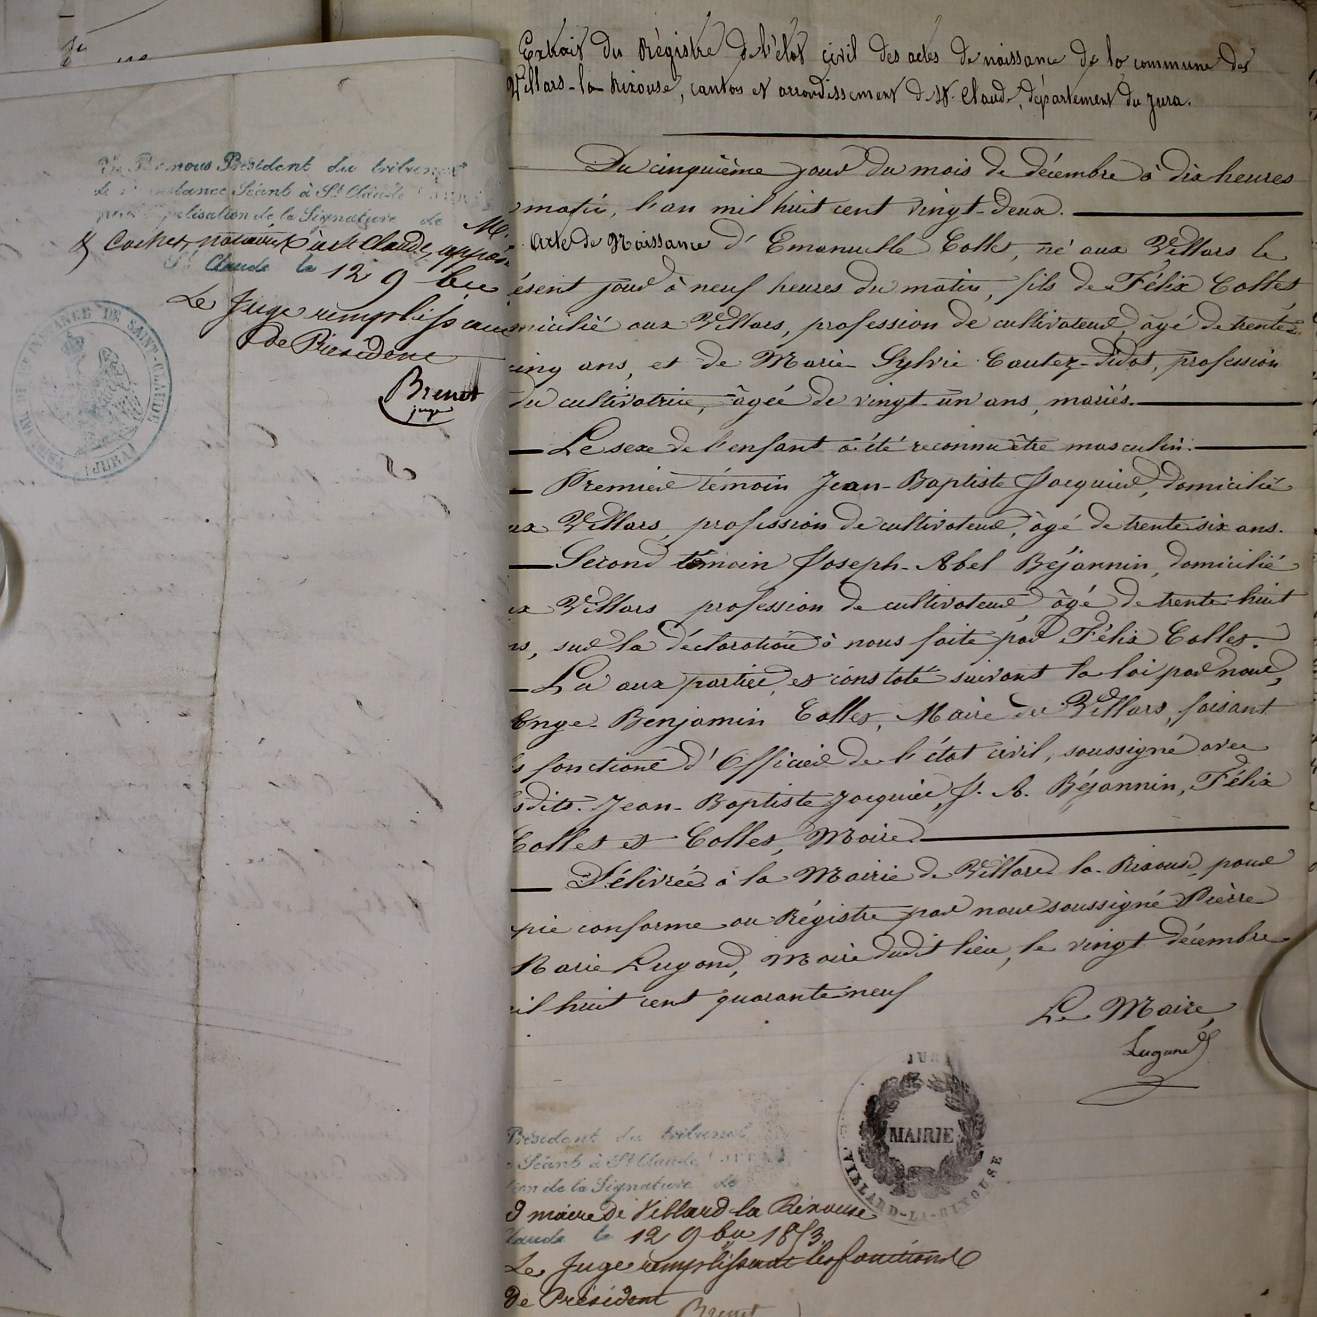 Vu Par nous Président du tribunal
de 1re instance Séant à St Claude
pour légalisation de la Signature de M.
Cachet, notaire à St Claude, apposée
St Claude le 12 9bre
Le Juge remplissant
de Président
Brenet
juge
TRIBUNAL DE 1RE INSTANCE DE SAINT-CLAUDE (JURA)
Extrait du Régistre de l'état civil des actes de naissance de la commune des
Villars-la Rixouse, canton et arrondissement de St. Claude, département du Jura.
Du cinquième jour du mois de décembre à dix heures
matin, l'an mil huit cent vingt-deux.
Acte de Naissance d'Emanuelle Collet, né aux Villars le
ésent jour à neuf heures du matin, fils de Félix Collet
micilié aux Villars, profession de cultivateur, âgé de trente
inq ans, et de Marie Sylvie Cautez-Didot, profession
du cultivatrice, âgée de vingt-un ans, mariés.
Le sexe de l'enfant a été reconnu être masculin.
Premier témoin Jean-Baptiste Jacquier, domicilié
ux Villars, profession de cultivateur, âgé de trente six ans.
Second témoin Joseph-Abel Béjannin, domicilié
ux Villars profession de cultivateur âgé de trente-huit
ns, sur la déclaration à nous faite par Félix Collet.
Lu aux parties et constaté suivant la loi par nous,
Ange-Benjamin Collet, Maire du Villars, faisant
s fonctions d'Officier de l'état civil, soussigné avec
sdits Jean-Baptiste Jacquier, J. A. Béjannin, Félix
Collet et Collet, Maire.
Délivrée à la Mairie de Villars la-Rixouse, pour
pie conforme au Régistre par nous soussigné Pierre
Marie Lugand, Maire dudit lieu, le vingt décembre
il huit cent quarante neuf
Le Maire,
Lugand
JURA
MAIRIE
VILLARD-LA-RIXOUSE
Président du tribunal
Séant à St Claude
tion de la Signature de
d maire de Villard la Rixouse
Claude le 12 9bre 1853
Le Juge remplissant les fonctions
de Président
Brenet